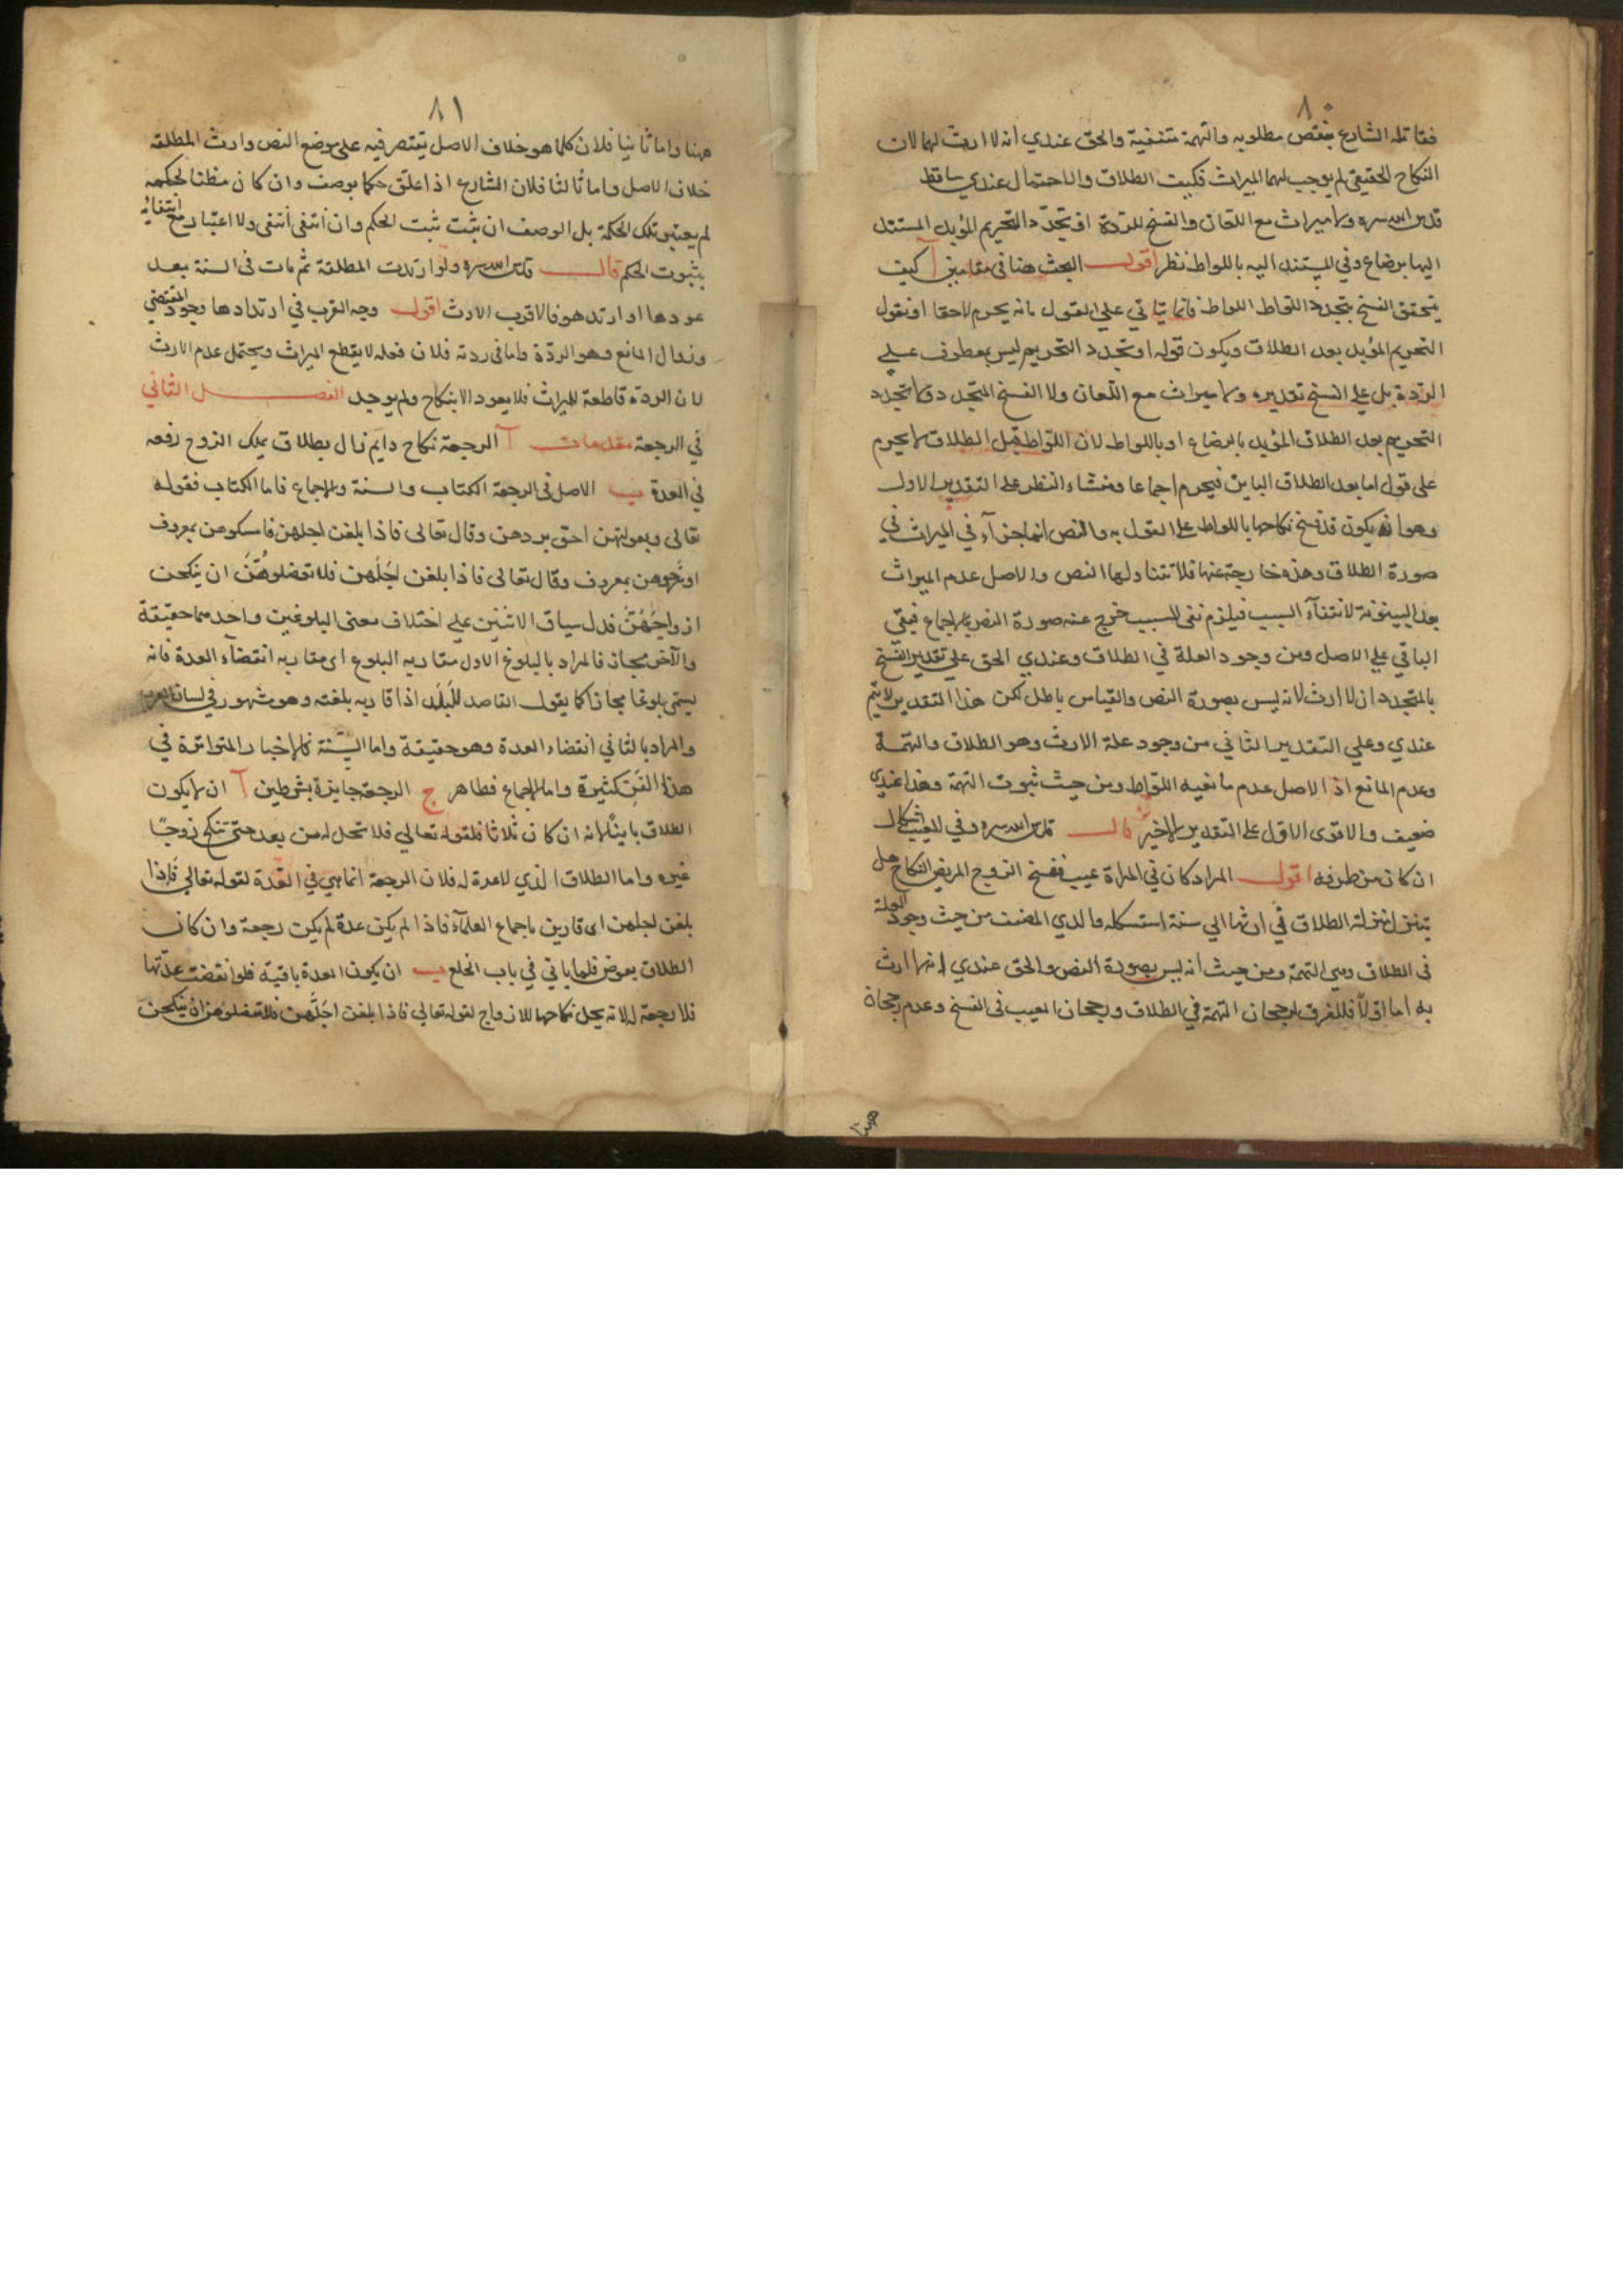 ٨٠
فقابله الشارع بنقض مطلوبه والتهمة منتفية والحق عندي انه لا ارث لهما لان
النكاح الحقيقي لم يوجب لهما الميراث فكيف الطلاق والاحتمال عندي ساقط
قدس الله سره ولا ميراث مع اللعان والفسخ للردة او تجدد التحريم المؤبد المستند
اليها برضاع وفي المستند اليه باللواط نظر اقول البحث هنا في مقامين آ كيف
يتحقق الفسخ بتجدد اللواط فانما يتاتي علي القول بانه يحرم لاحقا او نقول
التحريم المؤبد بعد الطلاق ويكون قوله او تجدد التحريم ليس بمعطوف علي
الردة بل علي الفسخ تقديره ولا ميراث مع اللعان ولا الفسخ المتجدد ولا تجدد
التحريم بعد الطلاق المؤبد بالرضاع او باللواط لان اللواط قبل الطلاق لا يحرم
علي قول اما بعد الطلاق الباين فيحرم اجماعا ومنشاء النظر علي التقدير الاول
وهو ان يكون قد فسخ نكاحها باللواط علي القول به والنص انما جزاء في الميراث في
صورة الطلاق وهذه خارجة عنها فلا تتناولها النص والاصل عدم الميراث
بعد البينونة لانتفآء السبب فيلزم نفي المسبب خرج عنه صورة النص بالاجماع فبقي
الباقي علي الاصل ومن وجود العلة في الطلاق وعندي الحق علي تقدير الفسخ
بالمتجدد ان لا ارث لانه ليس بصورة النص والقياس باطل لكن هذا التقدير لا يتم
عندي وعلي التقدير الثاني من وجود علة الارث وهو الطلاق والتهمة
وعدم المانع اذ الاصل عدم مانعية اللواط ومن حيث ثبوت التهمة وهذا عندي
ضعيف والاقوى الاول علي التقدير الاخير قال قدس الله سره وفي العيب اشكال
ان كان من طرفه اقول المراد كان في المراة عيب ففسخ الزوج المريض النكاح هل
يتنزل منزلة الطلاق في ارثها الي سنة استشكله والدي المصنف من حيث وجود العلة
في الطلاق وهي التهمة ومن حيث انه ليس بصورة النص والحق عندي انها لا ارث
به اما اولا فللفرق لرجحان التهمة في الطلاق ورجحان العيب في الفسخ وعدم رجحان
هنا
٨١
ههنا واما ثانيا فلان كلما هو خلاف الاصل يقتصر فيه علي موضع النص وارث المطلقة
خلاف الاصل واما ثالثا فلان الشارع اذا علق حكما بوصف وان كان مظنا لحكمه
لم يعتبر تلك الحكمة بل الوصف ان ثبت ثبت الحكم وان انتفي انتفي ولا اعتبار مع انتفائه
بثبوت الحكم قال قدس الله سره ولو ارتدت المطلقة ثم مات في السنة بعد
عودها او ارتد هو فالاقرب الارث اقول وجه القرب في ارتدادها وجود المقتضي
وزوال المانع وهو الردة واما في ردته فلان فعله لا يقطع الميراث ويحتمل عدم الارث
لان الردة قاطعة للميراث فلا يعود الا بنكاح ولم يوجد الفصل الثاني
في الرجعة مقدمات آ الرجعة نكاح دايم زال بطلاق يملك الزوج رفعه
في العدة ب الاصل في الرجعة الكتاب والسنة والاجماع فاما الكتاب فقوله
تعالى وبعولتهن احق بردهن وقال تعالى فاذا بلغن اجلهن فامسكوهن بمعروف
او سرحوهن بمعروف وقال تعالى فاذا بلغن اجلهن فلا تعضلوهن ان ينكحن
ازواجهن فدل سياق الاثنين علي اختلاف معنى البلوغين واحدهما حقيقة
والآخر مجاز فالمراد بالبلوغ الاول مقاربة البلوغ اى مقاربه انقضآء العدة فانه
يسمى بلوغا مجازا كما يقول القاصد للبلد اذا قاربه بلغته وهو مشهور في لسان العرب
والمراد بالثاني انقضاء العدة وهو حقيقة واما السنة فالاخبار المتواترة في
هذا الفن كثيرة واما الاجماع فظاهر ج الرجعة جايزة بشرطين آ ان لا يكون
الطلاق باينا لانه ان كان ثلاثا فلقوله تعالي فلا تحل له من بعد حتى تنكح زوجا
غيره واما الطلاق الذي لا عدة له فلان الرجعة انما هي في العدة لقوله تعالي فاذا
بلغن اجلهن اى قاربن باجماع العلمآء فاذا لم يكن عدة لم يكن رجعة وان كان
الطلاق بعوض فلما ياتي في باب الخلع ب ان يكون العدة باقية فلو انقضت عدتها
فلا رجعة له لانه يحل نكاحها للازواج لقوله تعالي فاذا بلغن اجلهن فلا تعضلوهن ان ينكحن